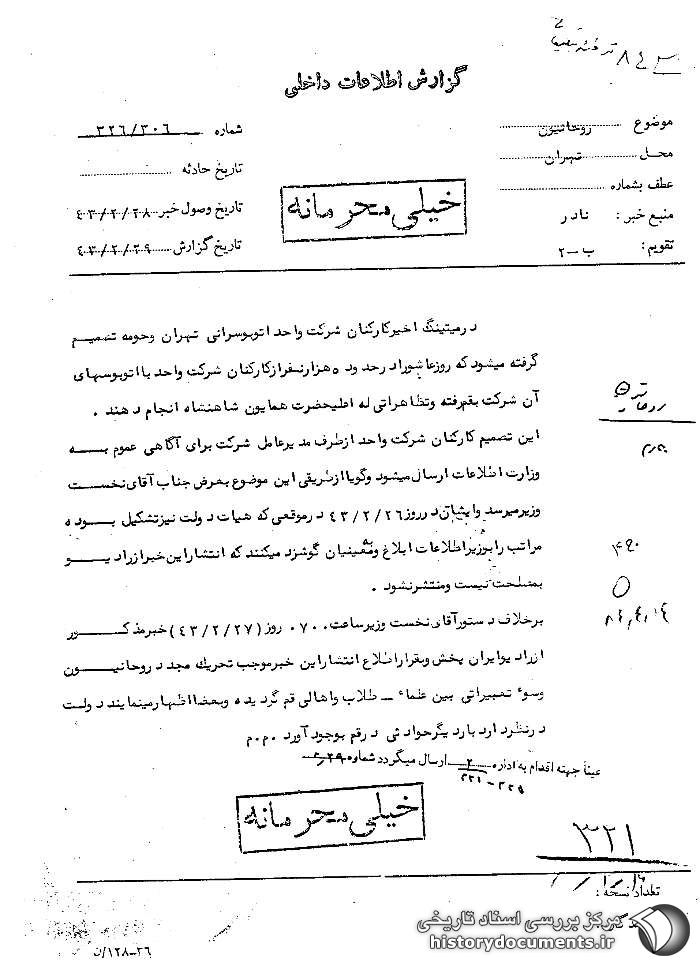 ۸۴۳
گزارش اطلاعات داخلی
موضوع روحانیون
محل تهران
عطف بشماره
منبع خبر : نادر
تقویم : ب-۲
شماره ۳۲۶/۳۰۶
تاریخ حادثه
تاریخ وصول خبر ۴۳/۲/۲۸
تاریخ گزارش ۴۳/۲/۲۹
خیلی محرمانه
درمیتینگ اخیرکارکنان شرکت واحد اتوبوسرانی تهران وحومه تصمیم
گرفته میشود که روزعاشورادرحدود ۵هزارنفرازکارکنان شرکت واحد بااتوبوسهای
آن شرکت بقم‌رفته وتظاهراتی له اعلیحضرت همایون شاهنشاه انجام دهند .
این تصمیم کارکنان شرکت واحد ازطرف مدیرعامل شرکت برای آگاهی عموم بـه
وزارت اطلاعات ارسال میشود وگویاازطریقی این موضوع بعرض جناب آقای نخست
وزیرمیرسد وایشان درروز ۴۳/۲/۲۶ درموقعی که هیات دولت نیزتشکیل بوده
مراتب رابوزیراطلاعات ابلاغ گوشزد میکنند که انتشاراین خبرازرادیـو
بمصلحت نیست ومنتشرنشود .
برخلاف دستورآقای نخست وزیرساعت ۰۷۰۰ روز (۴۳/۲/۲۷) خبرمذکـور
ازرادیوایران پخش وبقراراطلاع انتشاراین خبرموجب تحریک مجدد روحانیـون
وسوء تعبیراتی بین علماء ـ طلاب واهالی قم گردیده وبعضااظهارمینمایند دولت
درنظردارد باردیگرحوادثی درقم بوجودآورد م.م.
عیناً جهته اقدام به اداره ۲ ارسال میگردد شماره
۳۲۱
خیلی محرمانه
۳۲۱
تعداد نسخه :
۳۶-۱۲۸/ن
مرکز بررسی اسناد تاریخی
historydocuments.ir